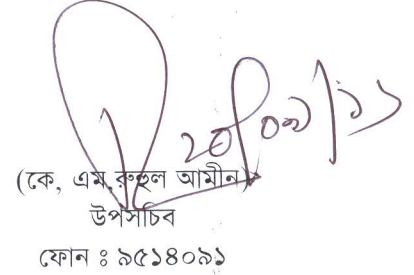 ২০/০৯/১১
(কে, এম, রুহুল আমীন)
উপসচিব
ফোন ঃ ৯৫১৪০৯১